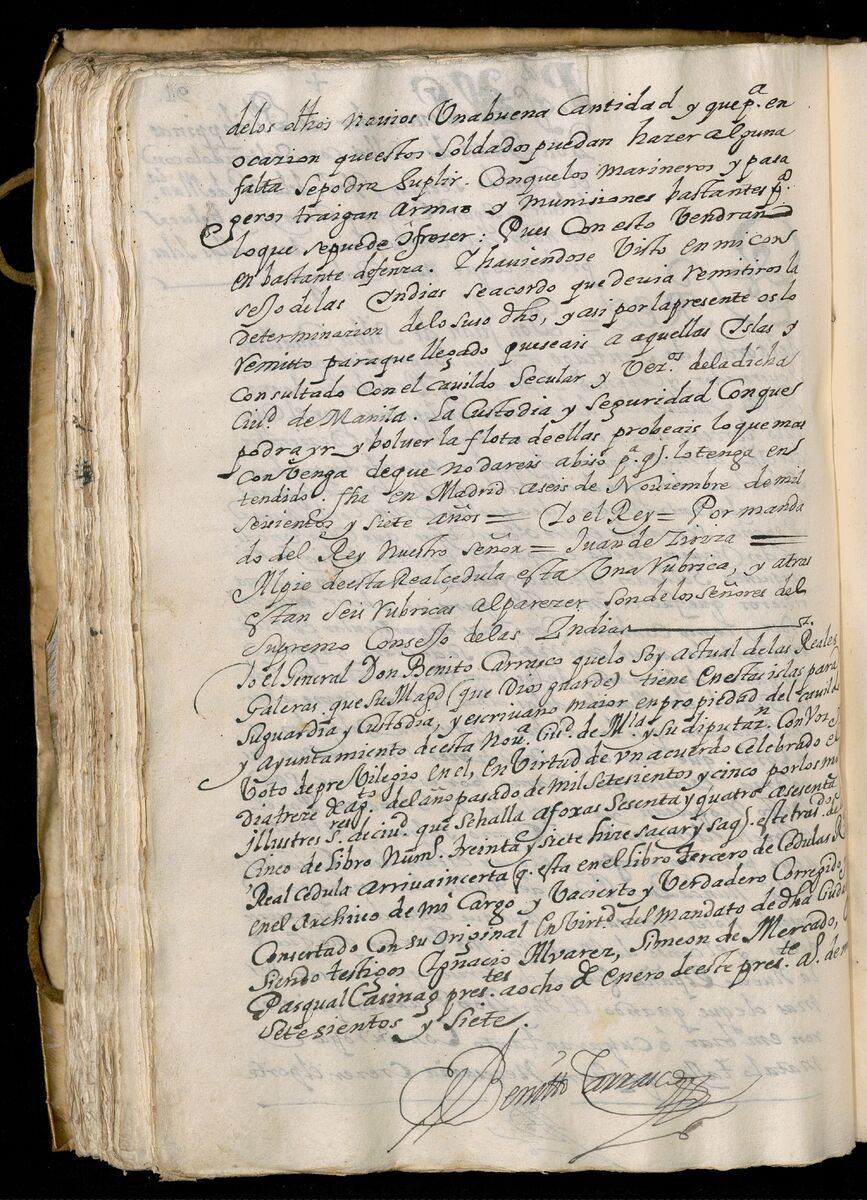 delos dhos navios Unabuena Cantidad y quep.a en
ocazion queestos Soldados puedan hazer alguna
falta sepodra Suplir. Conquelos marineros y pasa
geros traigan Armas y munisiones bastantes p.a
loque sepuede ofrezer: Pues Con esto Vendran
en bastante defenza. Y haviendose Visto en mi Con
sejo delas Indias seacordo que devia Remitiros la
determinazion de lo suso dho, y asi por la presente os lo
Remitto paraque llegado queseais a aquellas Islas y
consultado Con el Cavildo Secular y Vez.os dela dicha
Ciu.d de Manila. La Custodia y seguridad Conque se
podra yr y bolver la flota de ellas probeais lo que mas
Convenga de que no dareis abiso p.a q. lo tenga en
tendido. fha en Madrid a seis de Noviembre de mil
seisientos y siete años = Yo el Rey = Por manda
do del Rey Nuestro señor = Juan de Ziriza
Al pie de esta Real cedula esta Una Rubrica, y atras
estan seis Rubricas al parezer son de los señores del
Supremo Consejo de las Indias
Yo el General Don Benito Carrasco que lo soy actual de las Reales
Galeras que su Mag.d (que Dios guarde) tiene en estas islas para
su guardia y Custodia, y escrivano maior en propiedad del Cavildo
y Ayuntamiento de esta Nov.a Ciu.d de M.la y su diputaz.n Con Voz y
Voto de previlegio en el, En Virtud de Un acuerdo Celebrado el
Dia treze de ag.to del año pasado de mil Setesientos y cinco por los mu
Illustres s.res de ciu.d que se halla a foxas Sesenta y quatro a sesenta
Cinco de Libro Num.o treinta y siete hize sacar y saq. este tras.do de la
Real Cedula arriva incerta q. esta en el libro Tercero de Cedulas R
en el Archivo de mi Cargo y Vacierto y Verdadero Corregido
Consertado Con su original En Virt.d del Mandato de dha Ciuda
siendo testigos Ygnacio Alvarez, Simeon de Mercado,
Pasqual Casinag pres.tes a ocho de Enero de este pres.te a.o de m
Setesientos y Siete.
Benitto Carrasco